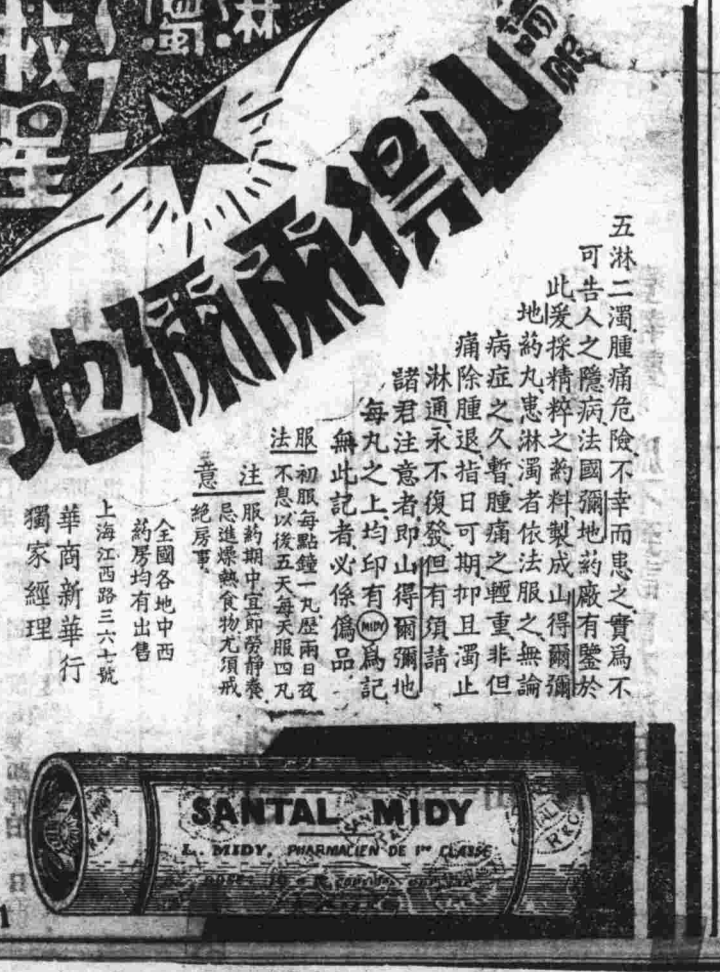 淋濁
之
救星
請服
山得爾彌地
五淋二濁腫痛危險不幸而患之實爲不
可告人之隱病法國彌地葯廠有鑒於
此爰採精粹之葯料製成山得爾彌
地葯丸患淋濁者依法服之無論
病症之久暫腫痛之輕重非但
痛除腫退指日可期抑且濁止
淋通永不復發但有須請
諸君注意者即山得爾彌地
每丸之上均印有MIDY爲記
無此記者必係僞品
服法
初服每點鐘一丸歷兩日夜
不息以後五天每天服四丸
注意
服葯期中宜即勞靜養
忌進燥熱食物尤須戒
絕房事
全國各地中西
葯房均有出售
上海江西路三六七號
華商新華行
獨家經理
SANTAL MIDY
L. MIDY, PHARMACIEN DE 1re CLASSE